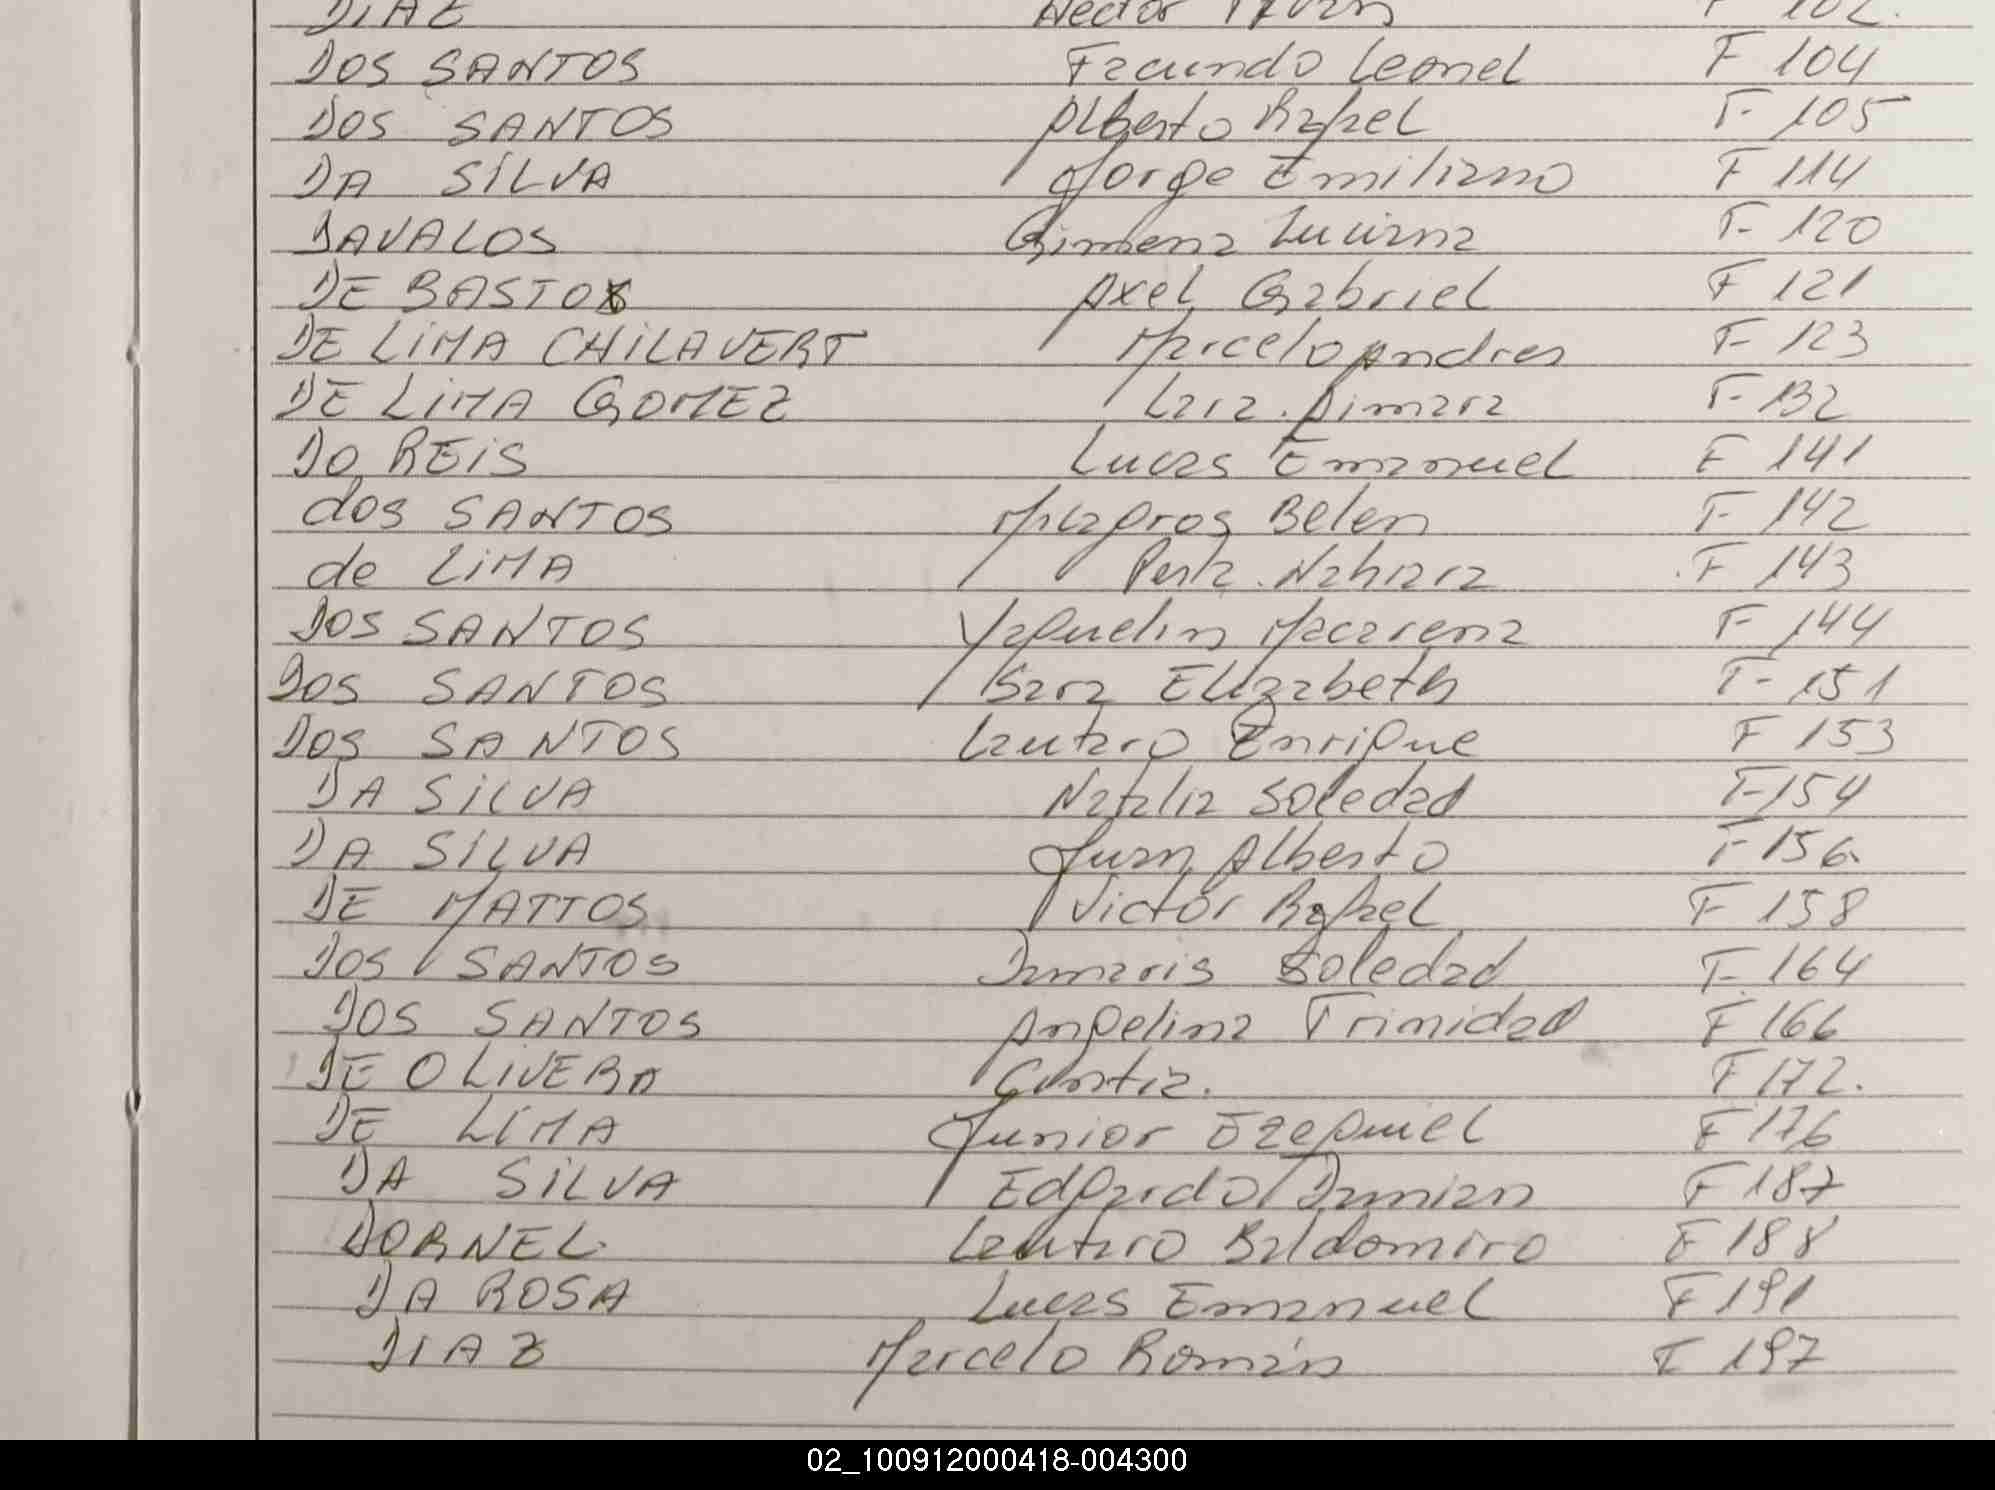 DIAZ Hector Iván F 102.
DOS SANTOS Facundo Leonel F 104
DOS SANTOS Alberto Rafael F 105
DA SILVA Jorge Emiliano F 114
DAVALOS Gimena Luciana F 120
DE BASTOS Axel Gabriel F 121
DE LIMA CHILAVERT Marcelo Andres F 123
DE LIMA GOMEZ Lara Aimara F 132
DO REIS Lucas Emanuel F 141
dos SANTOS Milagros Belen F 142
de LIMA Perla Nahiara F 143
DOS SANTOS Yaquelin Macarena F 144
DOS SANTOS Sara Elizabeth F 151
DOS SANTOS Lautaro Enrique F 153
DA SILVA Natalia Soledad F 154
DA SILVA Juan Alberto F 156
DE MATTOS Victor Rafael F 158
DOS SANTOS Damaris Soledad F 164
DOS SANTOS Angelina Trinidad F 166
DE OLIVERA Cintia. F 172.
DE LIMA Junior Ezequiel F 176
DA SILVA Edgardo Damian F 187
DORNEL Lautaro Baldomiro F 188
DA ROSA Lucas Emanuel F 191
DIAZ Marcelo Román F 197
02_100912000418-004300